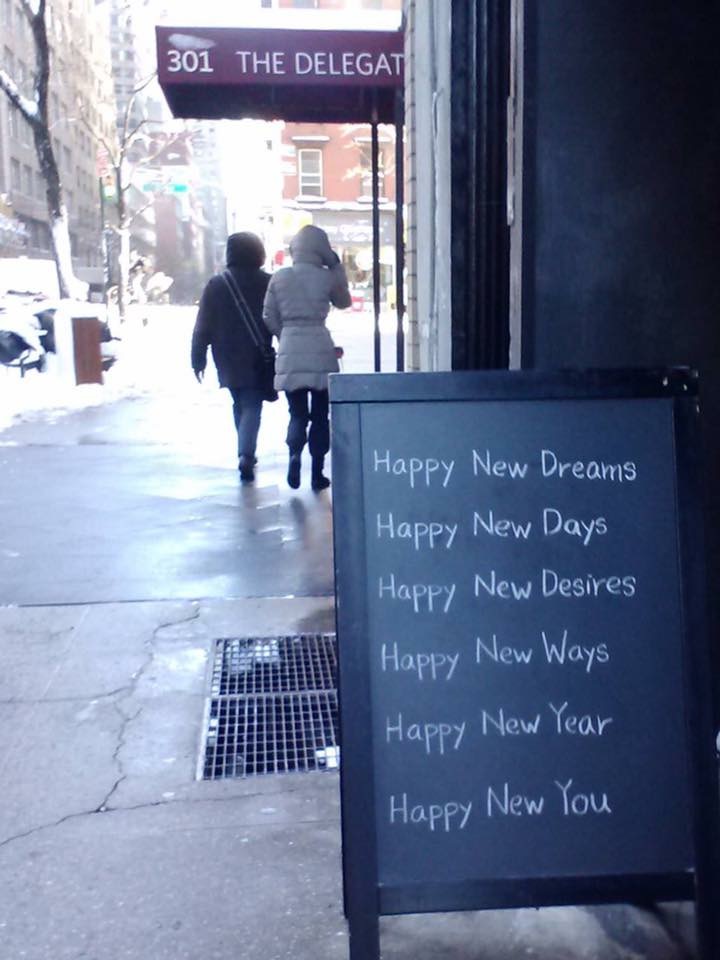 301 THE DELEGAT
Happy New Dreams
Happy New Days
Happy New Desires
Happy New Ways
Happy New Year
Happy New You